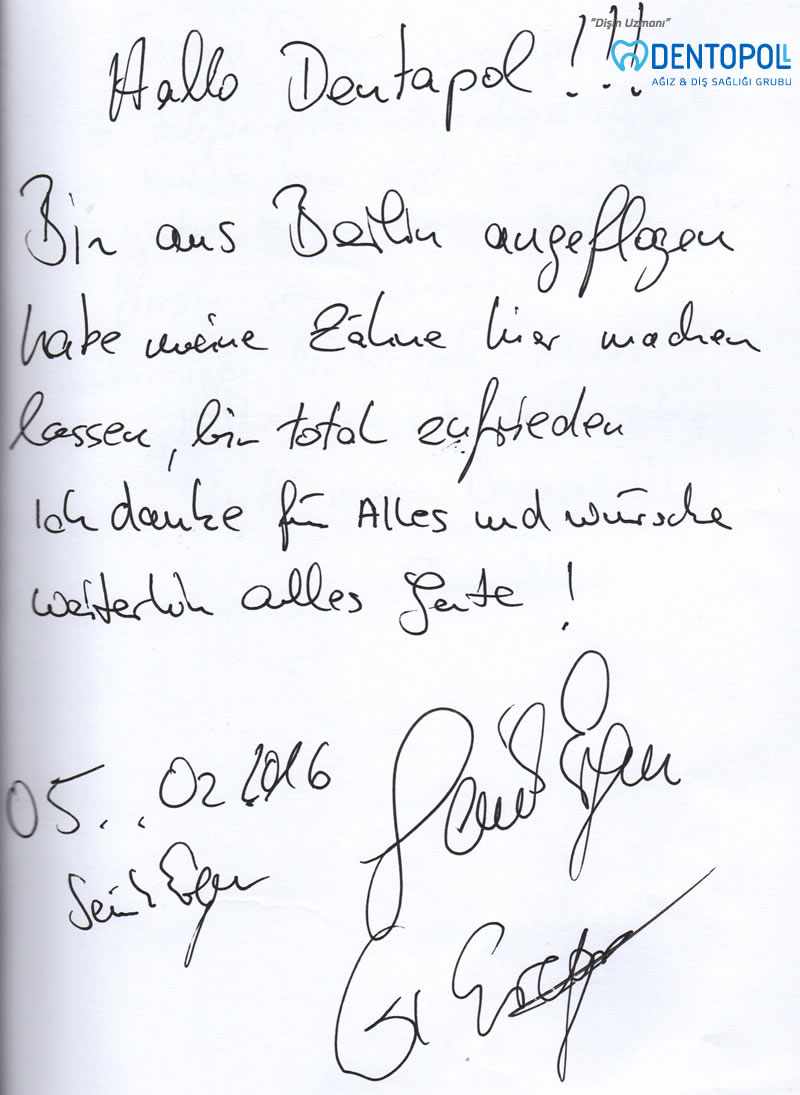 "Dişin Uzmanı"
DENTOPOLL
AĞIZ & DİŞ SAĞLIĞI GRUBU
Hallo Dentapol !!!
Bin aus Berlin angeflogen
habe meine Zähne hier machen
lassen, bin total zufrieden
Ich danke für Alles und wünsche
weiterhin alles gute !
05..02.2016